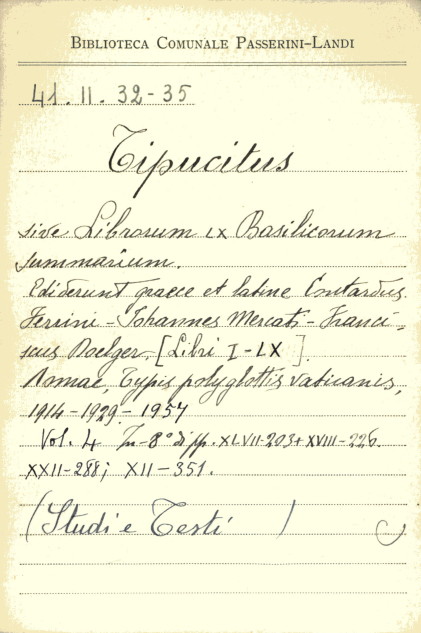 BIBLIOTECA COMUNALE PASSERINI-LANDI
41. II. 32-35
Tipucitus
sive Librorum LX Basilicorum
summarium.
Ediderunt graece et latine Contardus
Ferrini - Iohannes Mercati - Franci=
scus Doelger. [Libri I-LX].
Romae, Typis polyglottis vaticanis,
1914-1929-1957
Vol. 4 In-8° di pp. XLVII-203+XVIII-226.
XXII-288; XII-351.
(Studi e Testi )